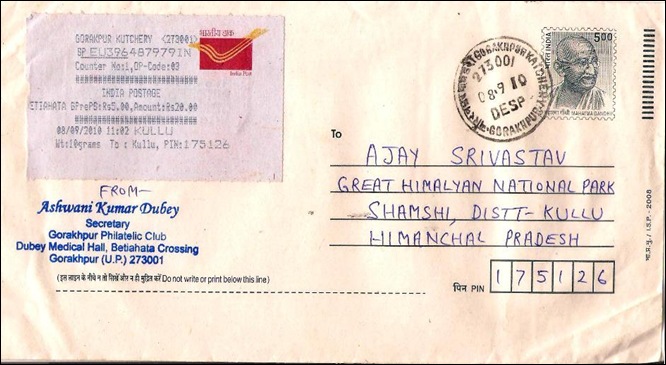 GORAKPUR KUTCHERY <273001>
BP EU396487979IN
Counter No:1,OP-Code:03
INDIA POSTAGE
BETIAHATA BP+PS:Rs5.00,Amount:Rs20.00
08/09/2010 11:02 KULLU
Wt:10grams To : Kullu, PIN:175126
भारतीय डाक
India Post
GORAKHPUR KATCHERY
273001
08-9 10
DESP
GORAKHPUR
भारत INDIA
5.00
महात्मा गाँधी MAHATMA GANDHI
To
AJAY SRIVASTAV
GREAT HIMALYAN NATIONAL PARK
SHAMSHI, DISTT-KULLU
HIMANCHAL PRADESH
पिन PIN 175126
भा.प्र.मु. / I.S.P. - 2008
FROM-
Ashwani Kumar Dubey
Secretary
Gorakhpur Philatelic Club
Dubey Medical Hall, Betiahata Crossing
Gorakhpur (U.P.) 273001
(इस लाइन के नीचे न तो लिखें और न ही मुद्रित करें Do not write or print below this line)